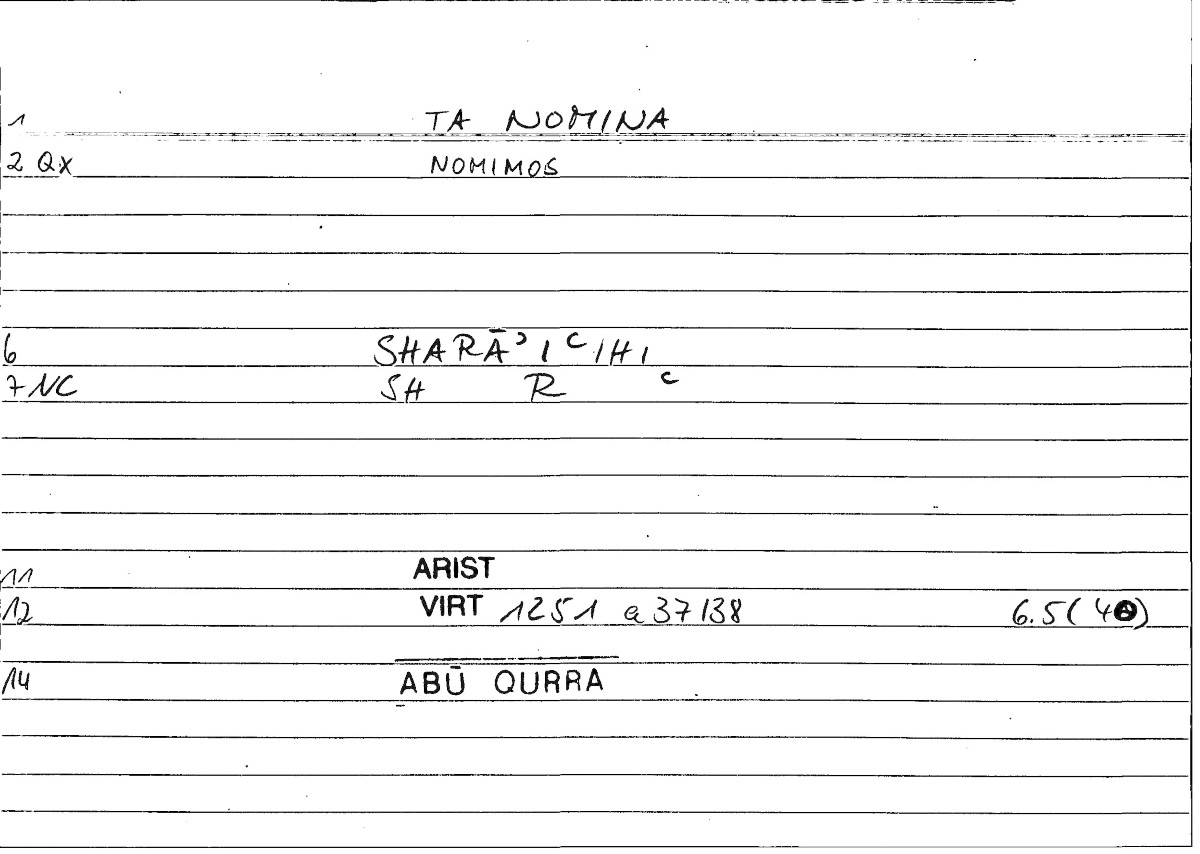 1 TA NOMINA
2 QX NOMIMOS
6 SHARĀʾIʿIHI
7 NC SH R ʿ
11 ARIST
12 VIRT 1251 a 37/38 6.5(4)
14 ABŪ QURRA